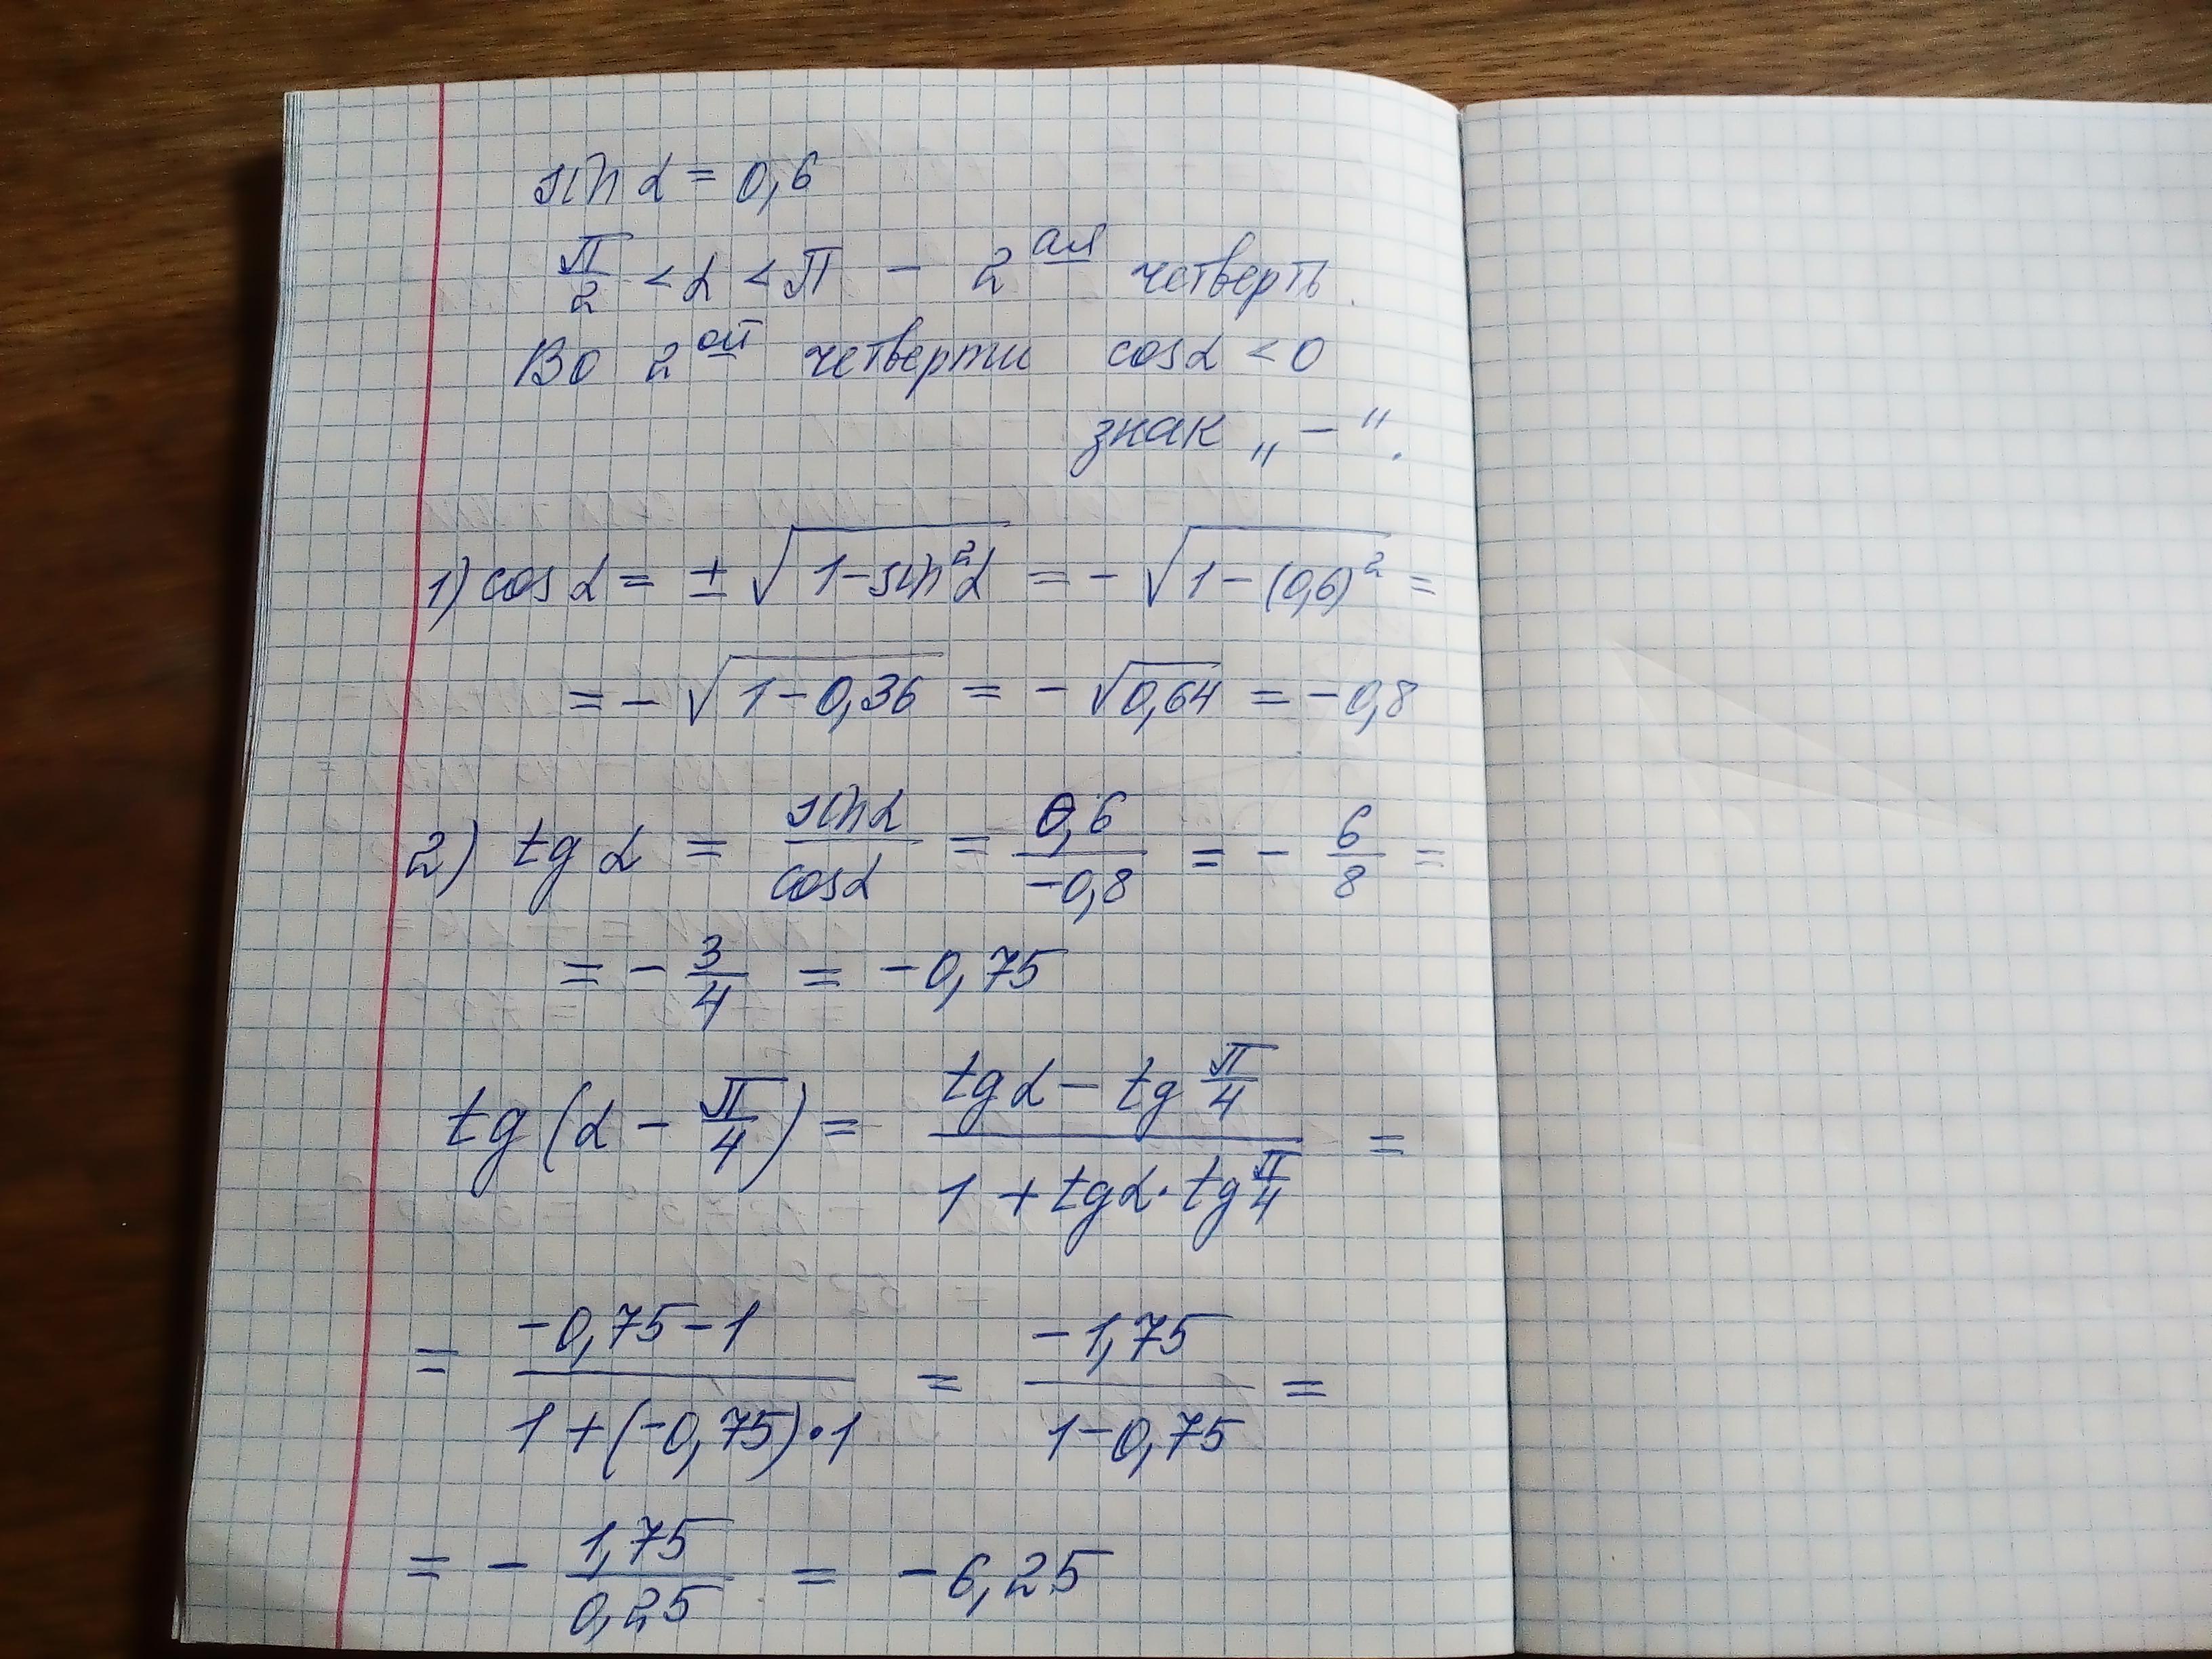 sin α = 0,6
π/2 < α < π - 2ая четверть.
Во 2ой четверти cosα < 0
знак „ - ".
1) cos α = ± √(1-sin²α) = - √(1-(0,6)²) =
= - √(1-0,36) = - √0,64 = -0,8
2) tg α = sinα/cosα = 0,6/-0,8 = - 6/8 =
= - 3/4 = -0,75
tg(α - π/4) = (tgα - tg π/4)/(1 + tgα · tg π/4) =
= (-0,75-1)/(1+(-0,75)·1) = -1,75/(1-0,75) =
= - 1,75/0,25 = -6,25